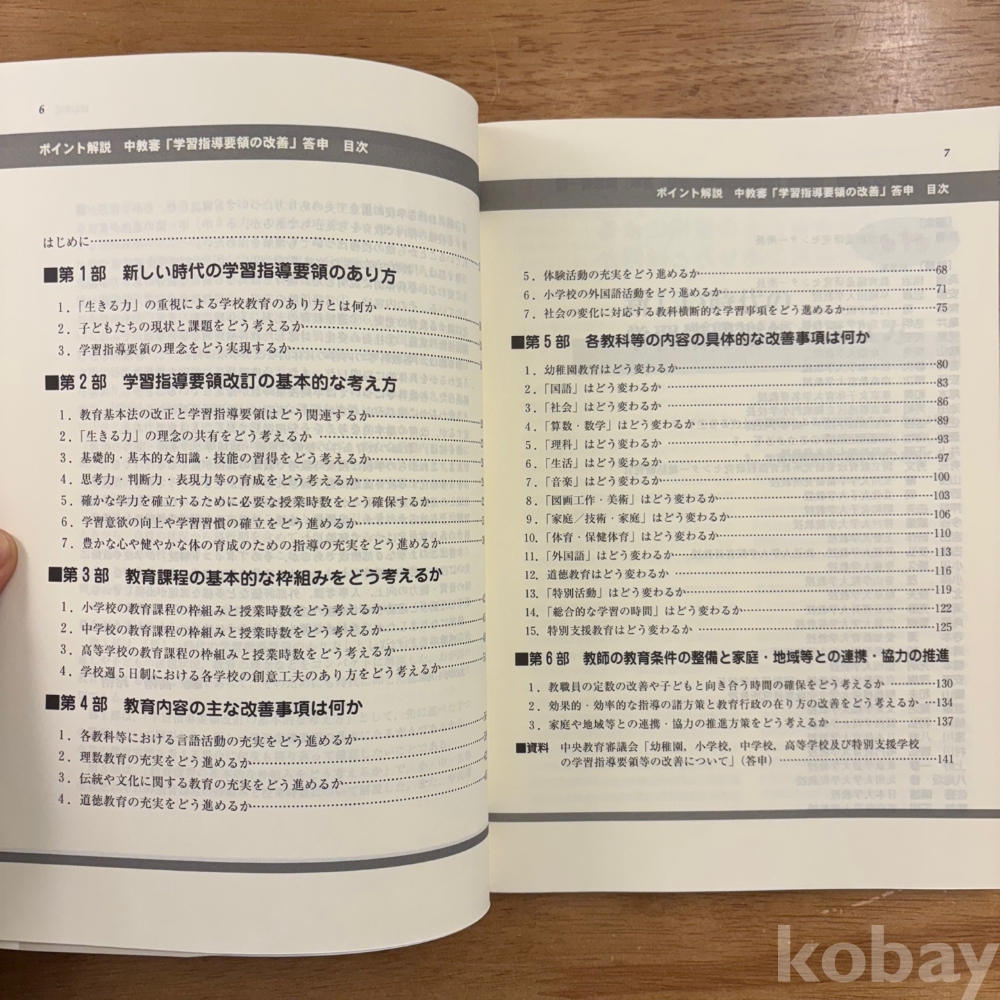 6
ポイント解説 中教審「学習指導要領の改善」答申 目次
はじめに
■第1部 新しい時代の学習指導要領のあり方
1.「生きる力」の重視による学校教育のあり方とは何か
2.子どもたちの現状と課題をどう考えるか
3.学習指導要領の理念をどう実現するか
■第2部 学習指導要領改訂の基本的な考え方
1.教育基本法の改正と学習指導要領はどう関連するか
2.「生きる力」の理念の共有をどう考えるか
3.基礎的・基本的な知識・技能の習得をどう考えるか
4.思考力・判断力・表現力等の育成をどう考えるか
5.確かな学力を確立するために必要な授業時数をどう確保するか
6.学習意欲の向上や学習習慣の確立をどう進めるか
7.豊かな心や健やかな体の育成のための指導の充実をどう進めるか
■第3部 教育課程の基本的な枠組みをどう考えるか
1.小学校の教育課程の枠組みと授業時数をどう考えるか
2.中学校の教育課程の枠組みと授業時数をどう考えるか
3.高等学校の教育課程の枠組みと授業時数をどう考えるか
4.学校週5日制における各学校の創意工夫のあり方をどう考えるか
■第4部 教育内容の主な改善事項は何か
1.各教科等における言語活動の充実をどう進めるか
2.理数教育の充実をどう進めるか
3.伝統や文化に関する教育の充実をどう進めるか
4.道徳教育の充実をどう進めるか
7
ポイント解説 中教審「学習指導要領の改善」答申 目次
5.体験活動の充実をどう進めるか……68
6.小学校の外国語活動をどう進めるか……71
7.社会の変化に対応する教科横断的な学習事項をどう進めるか……75
■第5部 各教科等の内容の具体的な改善事項は何か
1.幼稚園教育はどう変わるか……80
2.「国語」はどう変わるか……83
3.「社会」はどう変わるか……86
4.「算数・数学」はどう変わるか……89
5.「理科」はどう変わるか……93
6.「生活」はどう変わるか……97
7.「音楽」はどう変わるか……100
8.「図画工作・美術」はどう変わるか……103
9.「家庭/技術・家庭」はどう変わるか……106
10.「体育・保健体育」はどう変わるか……110
11.「外国語」はどう変わるか……113
12.道徳教育はどう変わるか……116
13.「特別活動」はどう変わるか……119
14.「総合的な学習の時間」はどう変わるか……122
15.特別支援教育はどう変わるか……125
■第6部 教師の教育条件の整備と家庭・地域等との連携・協力の推進
1.教職員の定数の改善や子どもと向き合う時間の確保をどう考えるか……130
2.効果的・効率的な指導の諸方策と教育行政の在り方の改善をどう考えるか……134
3.家庭や地域等との連携・協力の推進方策をどう考えるか……137
■資料 中央教育審議会「幼稚園,小学校,中学校,高等学校及び特別支援学校
の学習指導要領等の改善について」(答申)……141
kobay